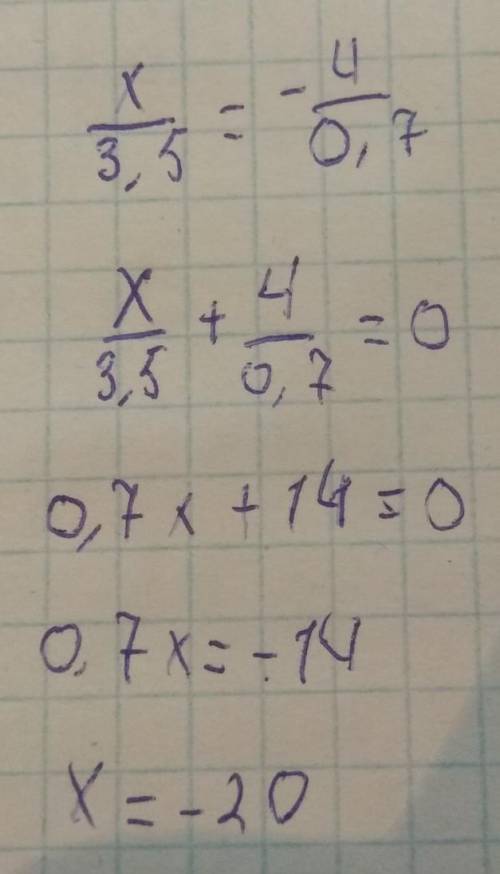 x/3,5 = -4/0,7
x/3,5 + 4/0,7 = 0
0,7x + 14 = 0
0,7x = -14
x = -20